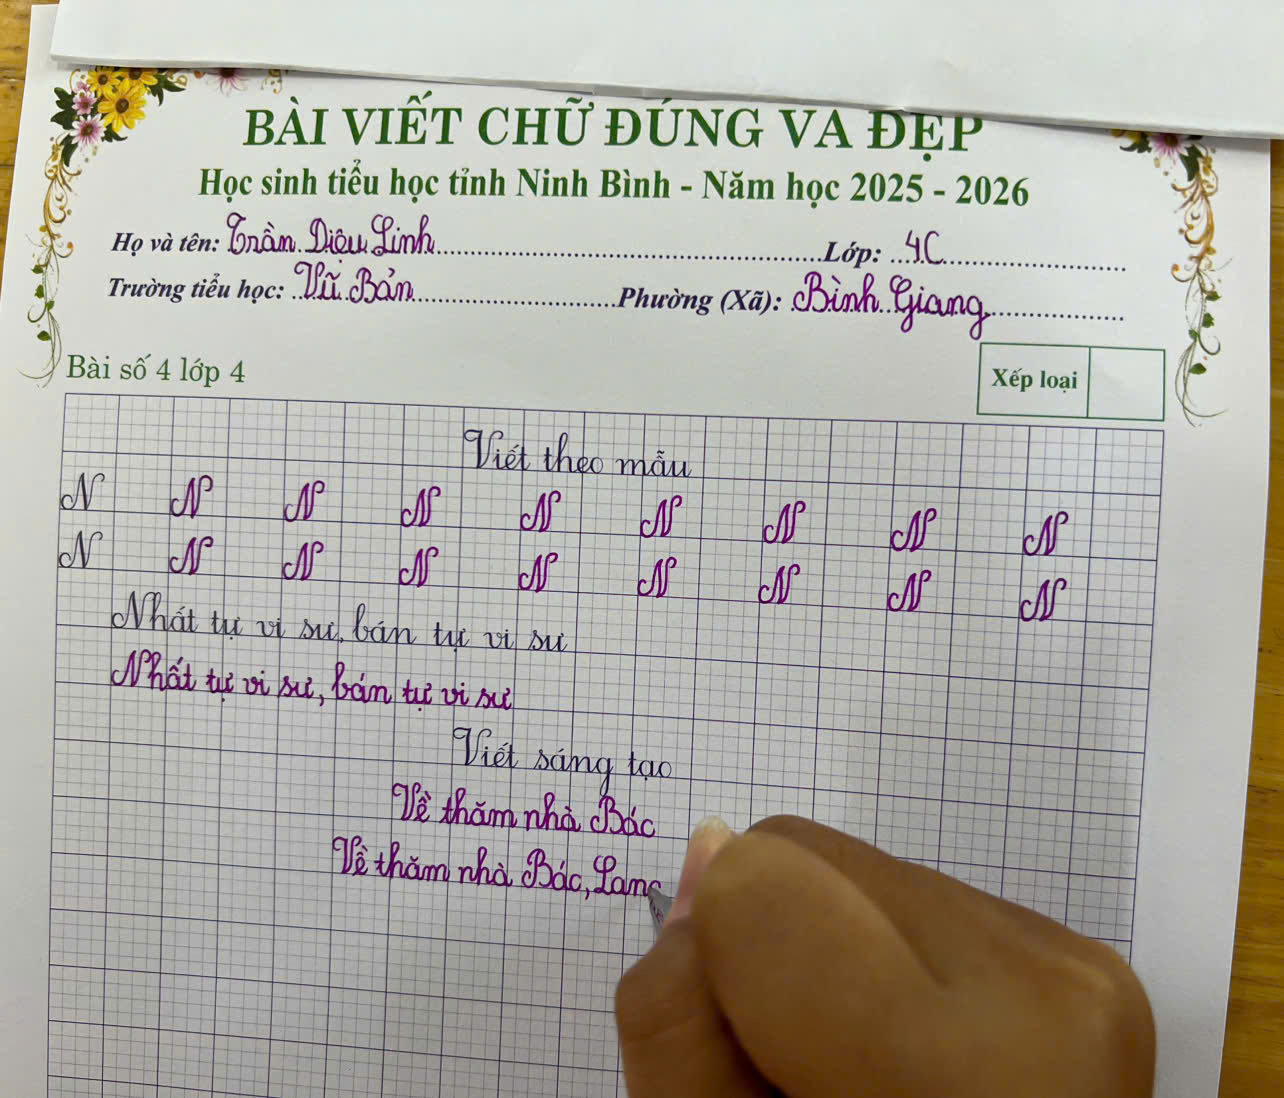 BÀI VIẾT CHỮ ĐÚNG VÀ ĐẸP
Học sinh tiểu học tỉnh Ninh Bình - Năm học 2025 - 2026
Họ và tên: Trần Diệu Linh Lớp: 4C
Trường tiểu học: Vũ Bản Phường (Xã): Bình Giang
Bài số 4 lớp 4
Xếp loại
Viết theo mẫu
N N N N N N N N N
N N N N N N N N N
Nhất tự vi sư, bán tự vi sư
Nhất tự vi sư, bán tự vi sư
Viết sáng tạo
Về thăm nhà Bác
Về thăm nhà Bác, Lang